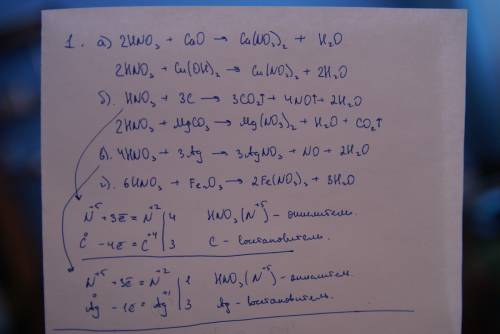 1. а) 2HNO₃ + CaO → Ca(NO₃)₂ + H₂O
2HNO₃ + Cu(OH)₂ → Cu(NO₃)₂ + 2H₂O
б). HNO₃ + 3C → 3CO₂↑ + 4NO↑ + 2H₂O
2HNO₃ + MgCO₃ → Mg(NO₃)₂ + H₂O + CO₂↑
в). 4HNO₃ + 3Ag → 3AgNO₃ + NO + 2H₂O
г). 6HNO₃ + Fe₂O₃ → 2Fe(NO₃)₃ + 3H₂O
N⁺⁵ + 3ē = N⁺² | 4 HNO₃ (N⁺⁵) - окислитель.
C⁰ - 4ē = C⁺⁴ | 3 C - восстановитель.
N⁺⁵ + 3ē = N⁺² | 1 HNO₃ (N⁺⁵) - окислитель.
Ag⁰ - 1ē = Ag⁺¹ | 3 Ag - восстановитель.